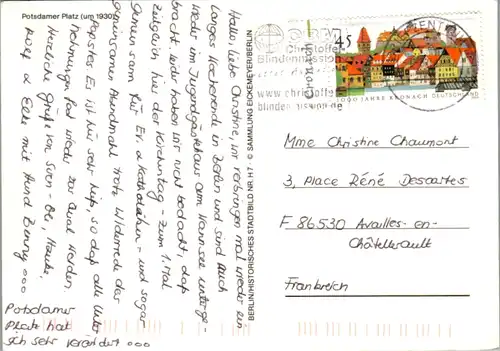 Potsdamer Platz (um 1930)
Hallo, liebe Christine, wir verbringen mal wieder ein
langes Wochenende in Berlin und sind auch
wieder im Jugendgästehaus am Wannsee unterge-
bracht. Leider haben wir nicht bedacht, daß
zeitgleich hier der Kirchentag - zum 1. Mal
gemeinsam für Ev. u. Katholiken - und sogar
gemeinsamem Abendmahl trotz Widerrede des
Papstes. Es ist hier sehr tief, so daß alle Unter-
nehmungen Rad wieder zur Qual werden.
Herzliche Grüße von Sven-Ole, Hauke,
Rolf u. Elke mit Hund Benny ooo
Potsdamer
Platz hat
sich sehr verändert ooo
BERLIN/HISTORISCHES STADTBILD NR. H7 · © SAMMLUNG ECKEMEYER/BERLIN
Christoffel
Blindenmission
www.christoffel
blindenmission.de
45
Kronach
1000 JAHRE KRONACH
DEUTSCHLAND
Mme Christine Chaumont
3, Place Réné Descartes
F 86530 Availles-en-
Châtellerault
Frankreich